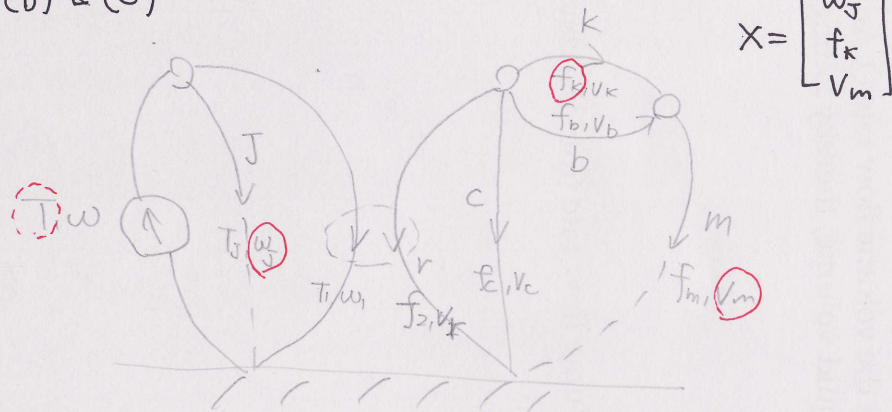 (b) & (c)
X = [ ωJ
fk
Vm ]
k
fk, vk
fb, vb
b
J
T, ω
TJ, ωJ
T1, ω1
r
c
fc, vc
m
fm, vm